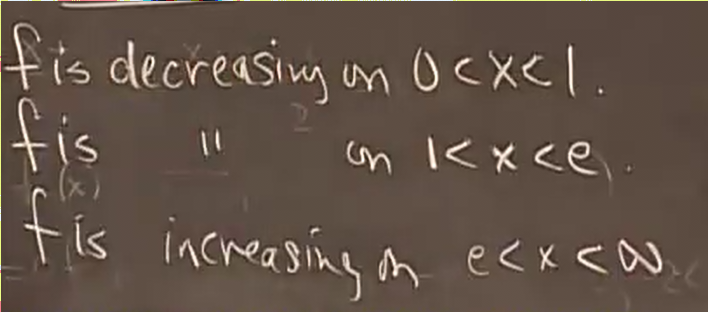 f is decreasing on 0<x<1.
f is " on 1<x<e.
f is increasing on e<x<∞